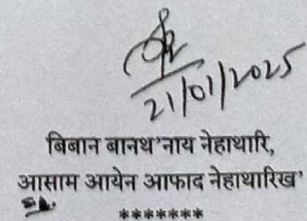 21/01/2025
बिबान बानथ'नाय नेहाथारि,
आसाम आयेन आफाद नेहाथारिख'
*******